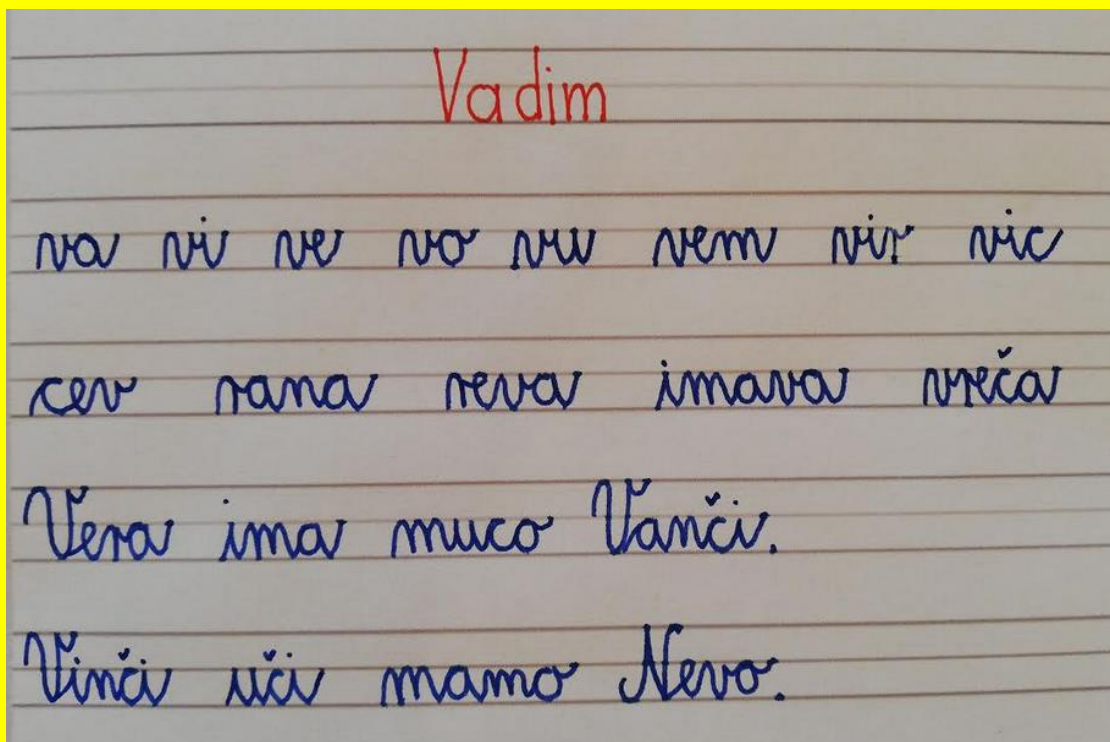 Vadim
va vi ve vo vu vem vir vic
cev rana reva imava vreča
Vera ima muco Vanči.
Vinči uči mamo Nevo.